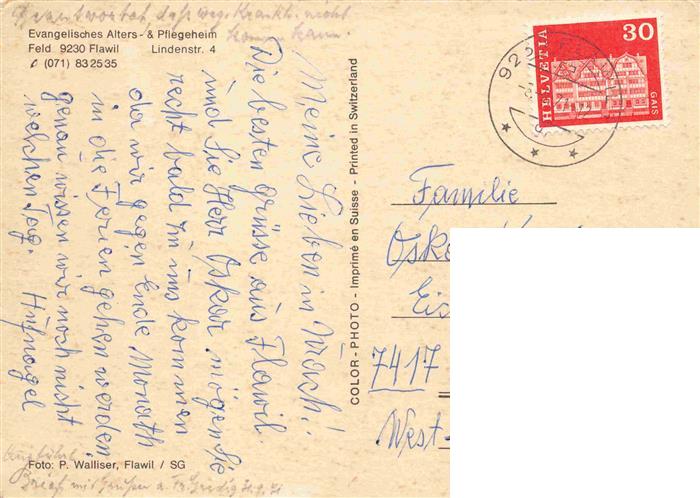 Beantwortet, dass weg. Krankh. nicht
kommen kann.
Evangelisches Alters- & Pflegeheim
Feld 9230 Flawil Lindenstr. 4
✆ (071) 83 25 35
Meine Lieben in
Die besten Grüsse aus Flawil
und Sie Herr Oskar mögen Sie
recht bald zu uns kommen
da wir gegen Ende Monath
in die Ferien gehen werden.
genau wissen wir noch nicht
welchen Tag. Hufnagel
Foto: P. Walliser, Flawil / SG
Brief mit Grüssen a.
COLOR - PHOTO - Imprimé en Suisse - Printed in Switzerland
HELVETIA
30
GAIS
923
Familie
Osk
Eis
7417
West-